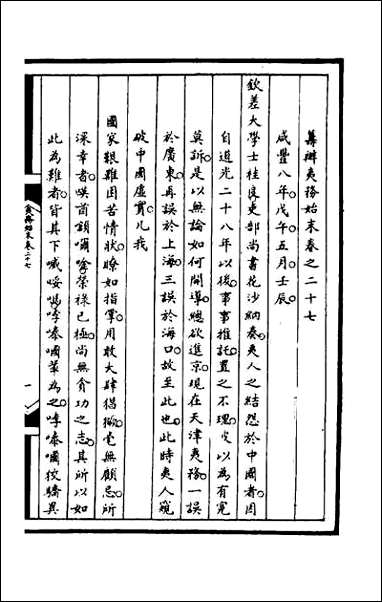 籌辦夷務始末卷之二十七
咸豐八年戊午五月壬辰
欽差大學士桂良吏部尚書花沙納奏夷人之結怨於中國者因
自道光二十八年以後事事推託置之不理彼以為有冤
莫訴是以無論如何開導總欲進京現在天津夷務一誤
於廣東再誤於上海三誤於海口故至此也此時夷人窺
破中國虛實凡我
國家艱難困苦情狀瞭如指掌用敢大肆猖獗毫無顧忌所
深幸者㗸酋額爾唫榮祿已極尚無貪功之志其所以如
此為難者皆其下嘁㖷㖿㖸嗹嘓等為之㖸嗹嘓狡驕異
夷務始末卷二十七
一